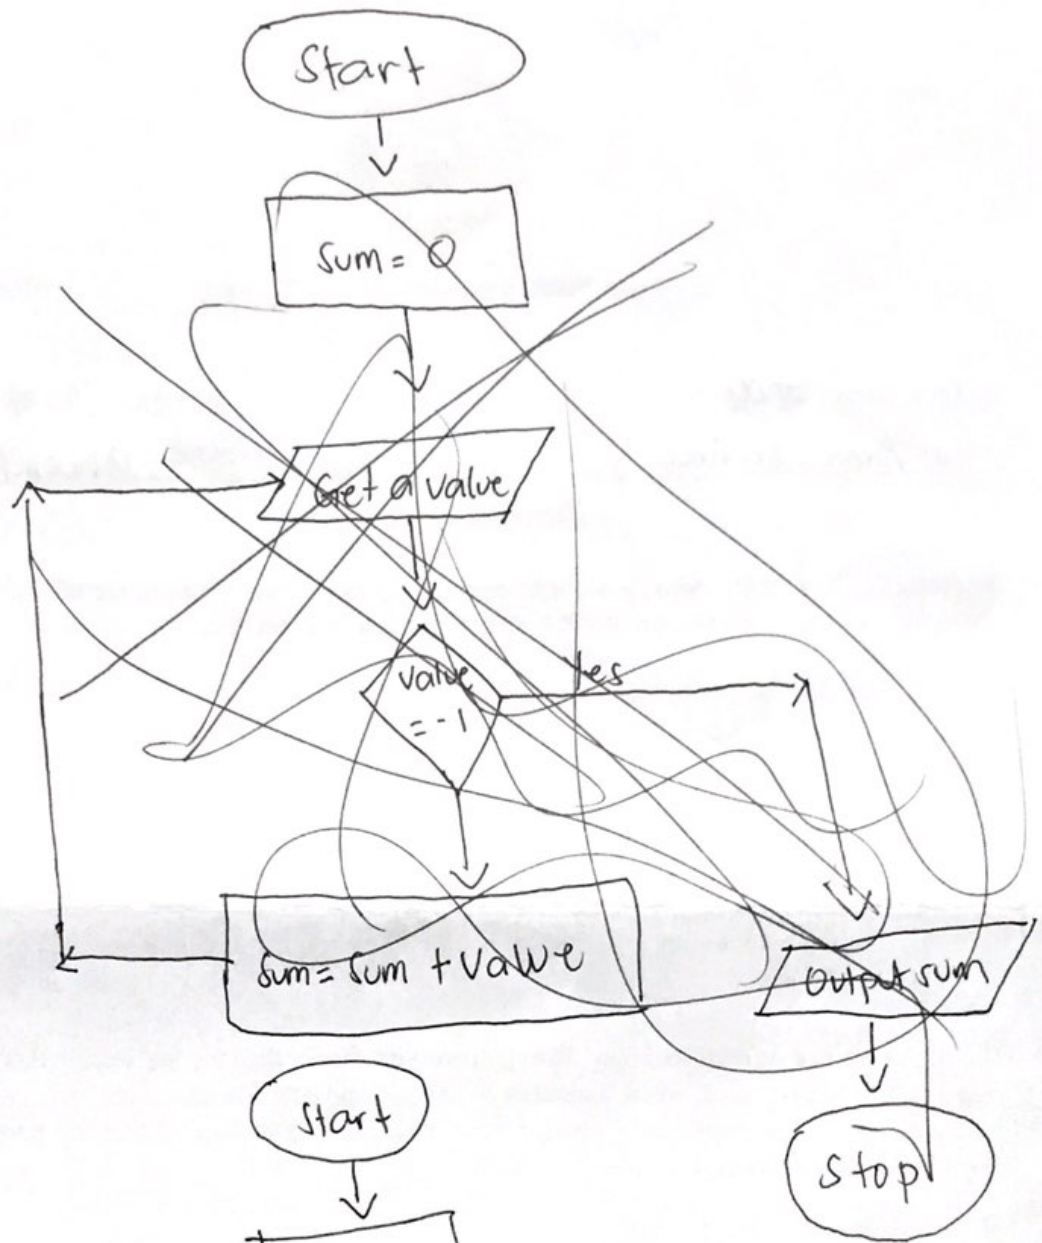 Start
sum = 0
Get a value
value
= -1
Yes
sum = sum + value
output sum
Start
Stop